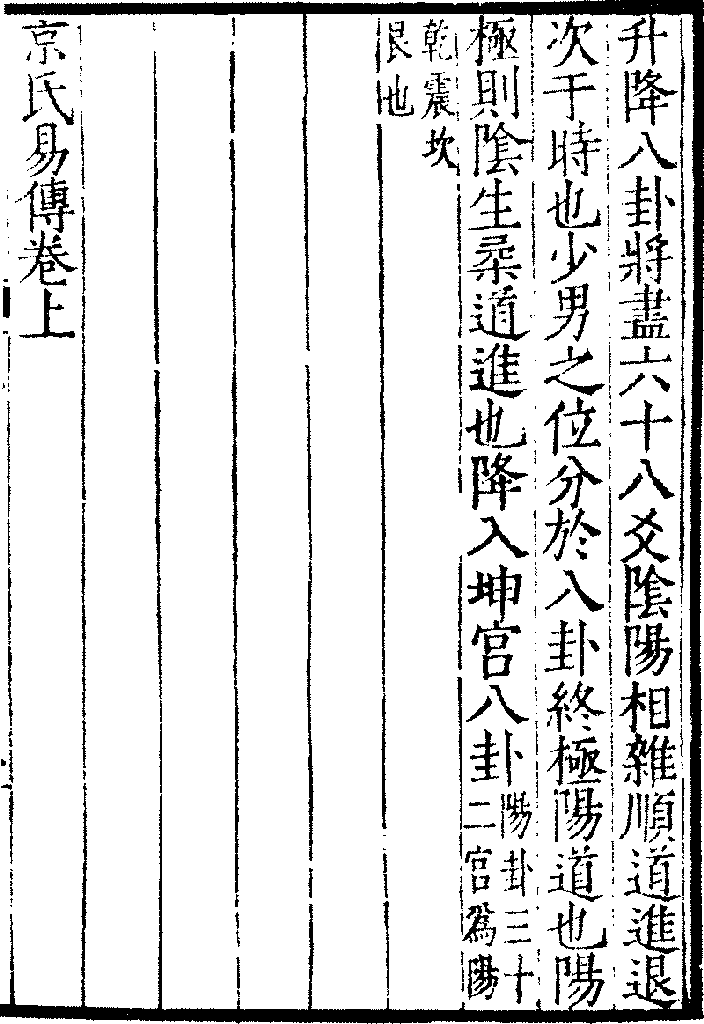 升降八卦將盡六十八爻陰陽相雜順道進退
次于時也少男之位分於八卦終極陽道也陽
極則陰生柔道進也降入坤宮八卦陽卦三十二宮爲陽
乾震坎艮也
京氏易傳卷上